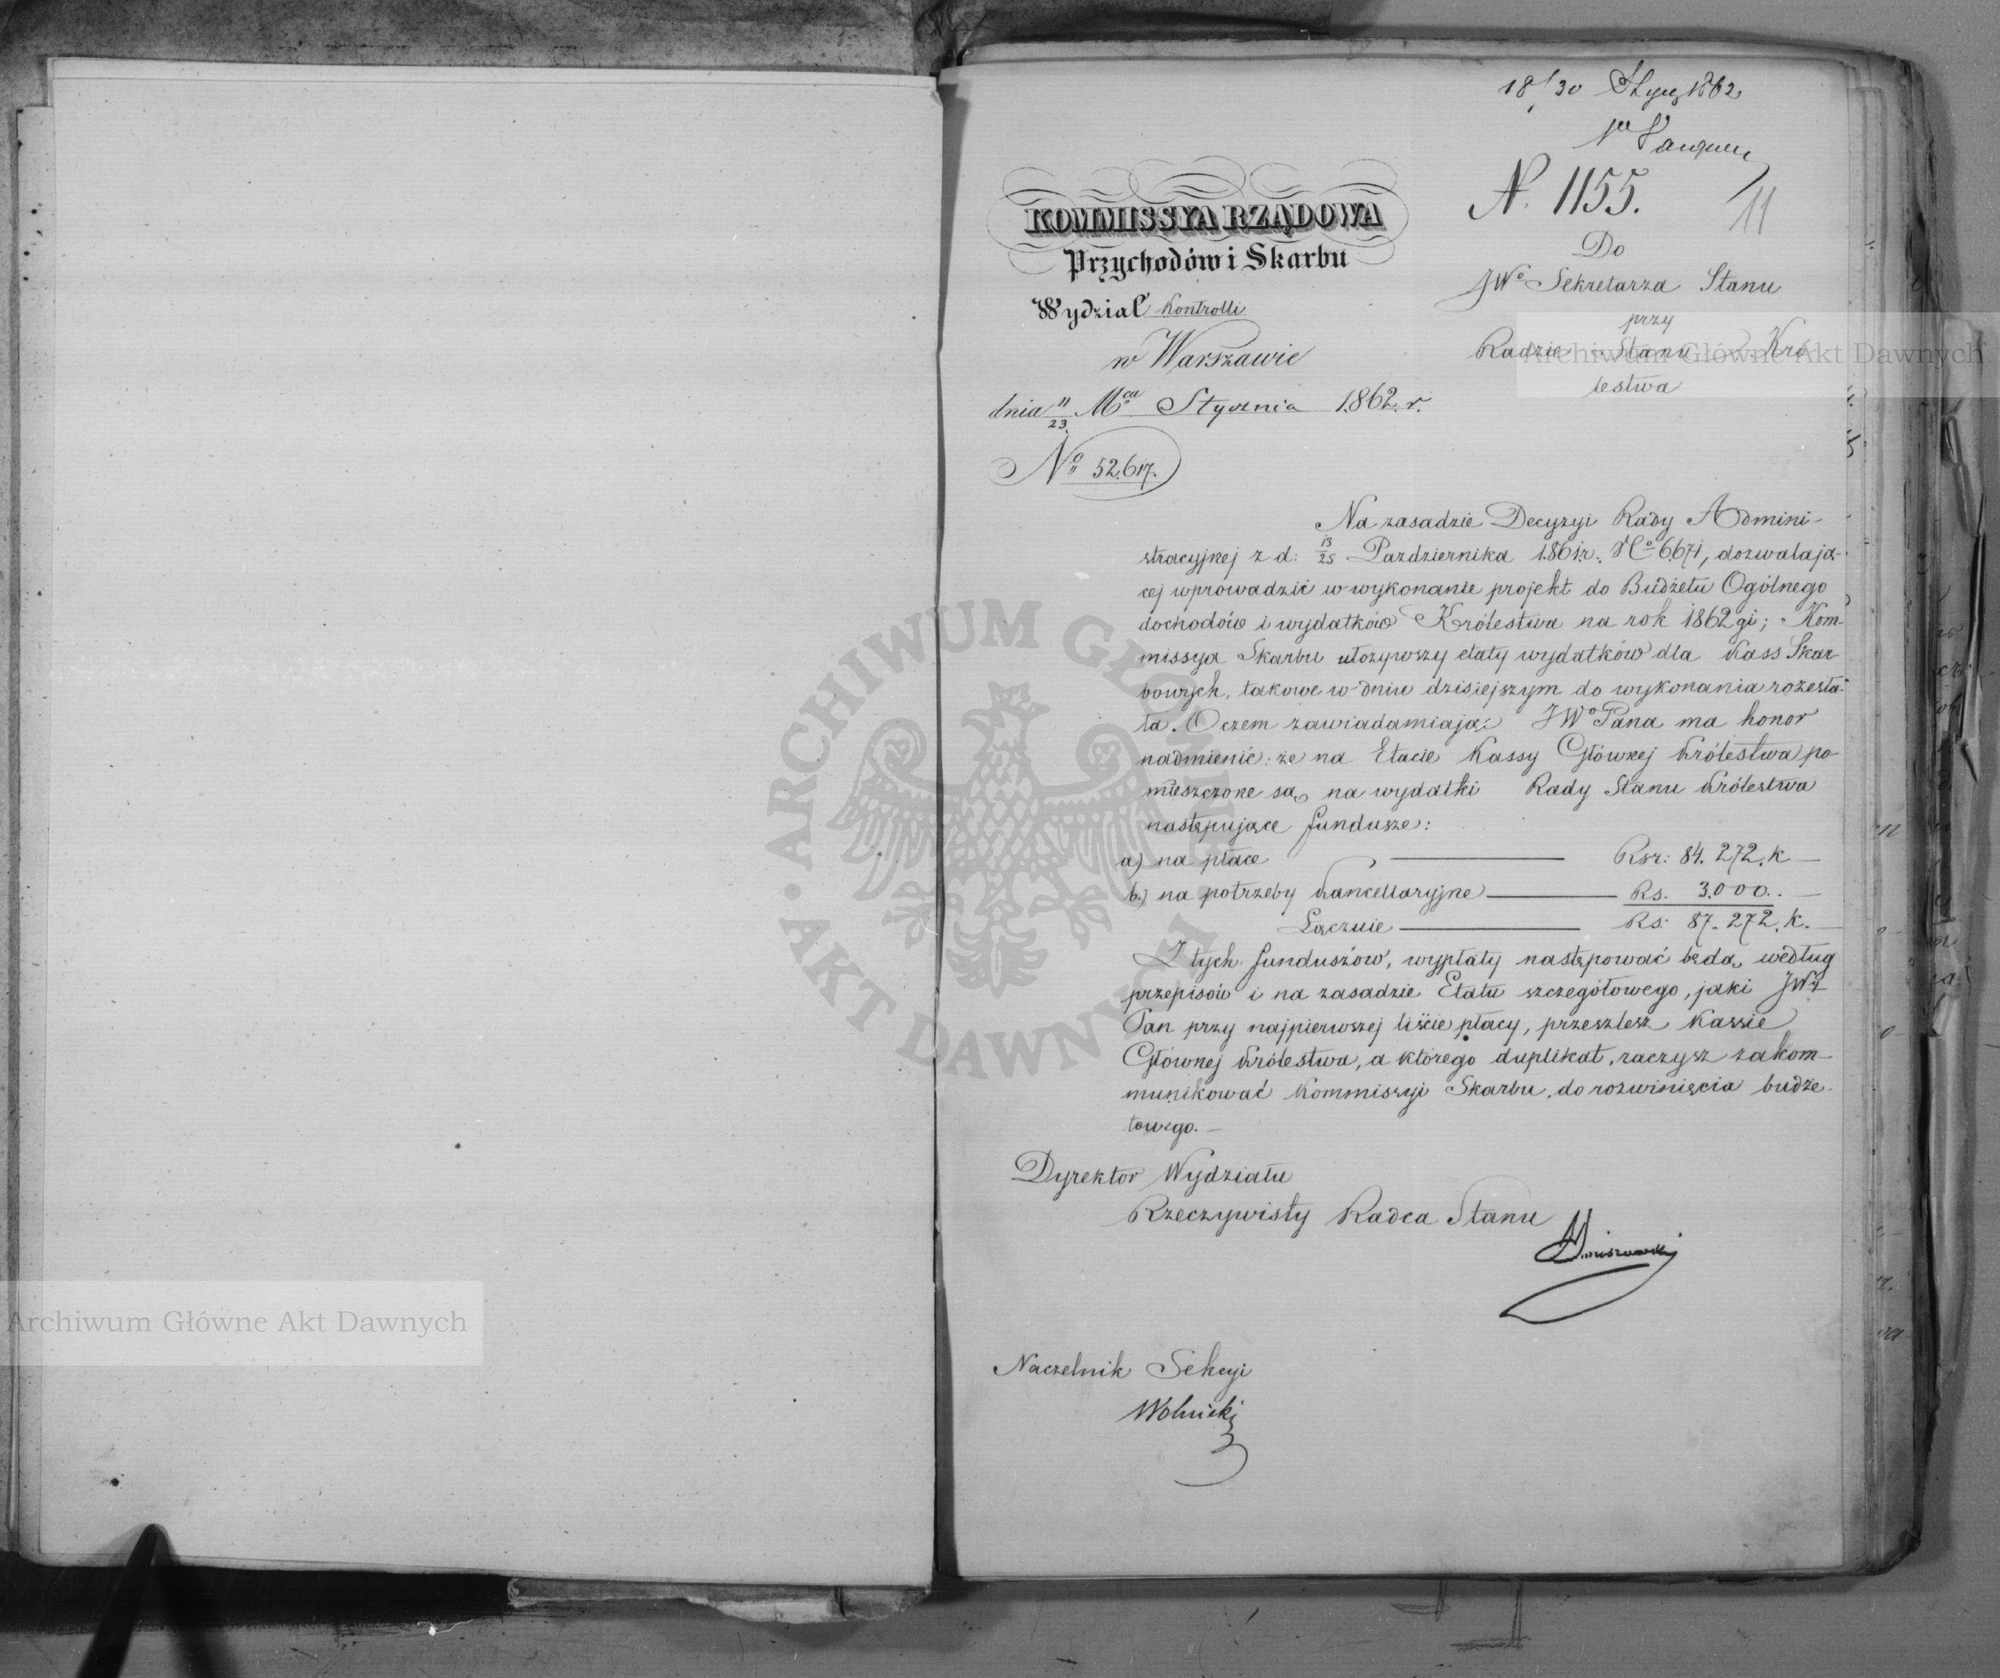 18/30 Stycz 1862
N. 1155.
11
KOMMISSYA RZĄDOWA
Przychodów i Skarbu
Wydział Kontrolli
w Warszawie
dnia 11/23 Mca Stycznia 1862. r.
No 52.617.
Do
JWo Sekretarza Stanu
przy
Radzie Stanu Kró
lestwa
Na zasadzie Decyzyi Rady Admini-
stracyjnej z d: 13/25 Pazdziernika 1861r. No 6.671, dozwalają-
cej wprowadzić w wykonanie projekt do Budżetu Ogólnego
dochodów i wydatków Królestwa na rok 1862gi; Kom-
missya Skarbu ułożywszy etaty wydatków dla Kass Skar-
bowych, takowe w dniu dzisiejszym do wykonania rozesła-
ła. O czem zawiadamiając JWo Pana ma honor
nadmienić: że na Etacie Kassy Głównej Królestwa po-
mieszczone są, na wydatki Rady Stanu Królestwa
następujące fundusze:
a) na płace Rsr: 84.272. k —
b.) na potrzeby Kancellaryjne Rs. 3.000. —
Łącznie Rs: 87.272. k. —
Z tych funduszów, wypłaty następować będą, według
przepisów i na zasadzie Etatu szczegółowego, jaki JWy
Pan przy najpierwszej liście płacy, przeszlesz Kassie
Głównej Królestwa, a którego duplikat, raczysz zakom-
munikować Kommissyi Skarbu, do rozwinięcia budże-
towego. —
Dyrektor Wydziału
Rzeczywisty Radca Stanu
Naczelnik Sekcyi
Wolnicki
Archiwum Główne Akt Dawnych
Archiwum Główne Akt Dawnych
ARCHIWUM GŁÓWNE
AKT DAWNYCH